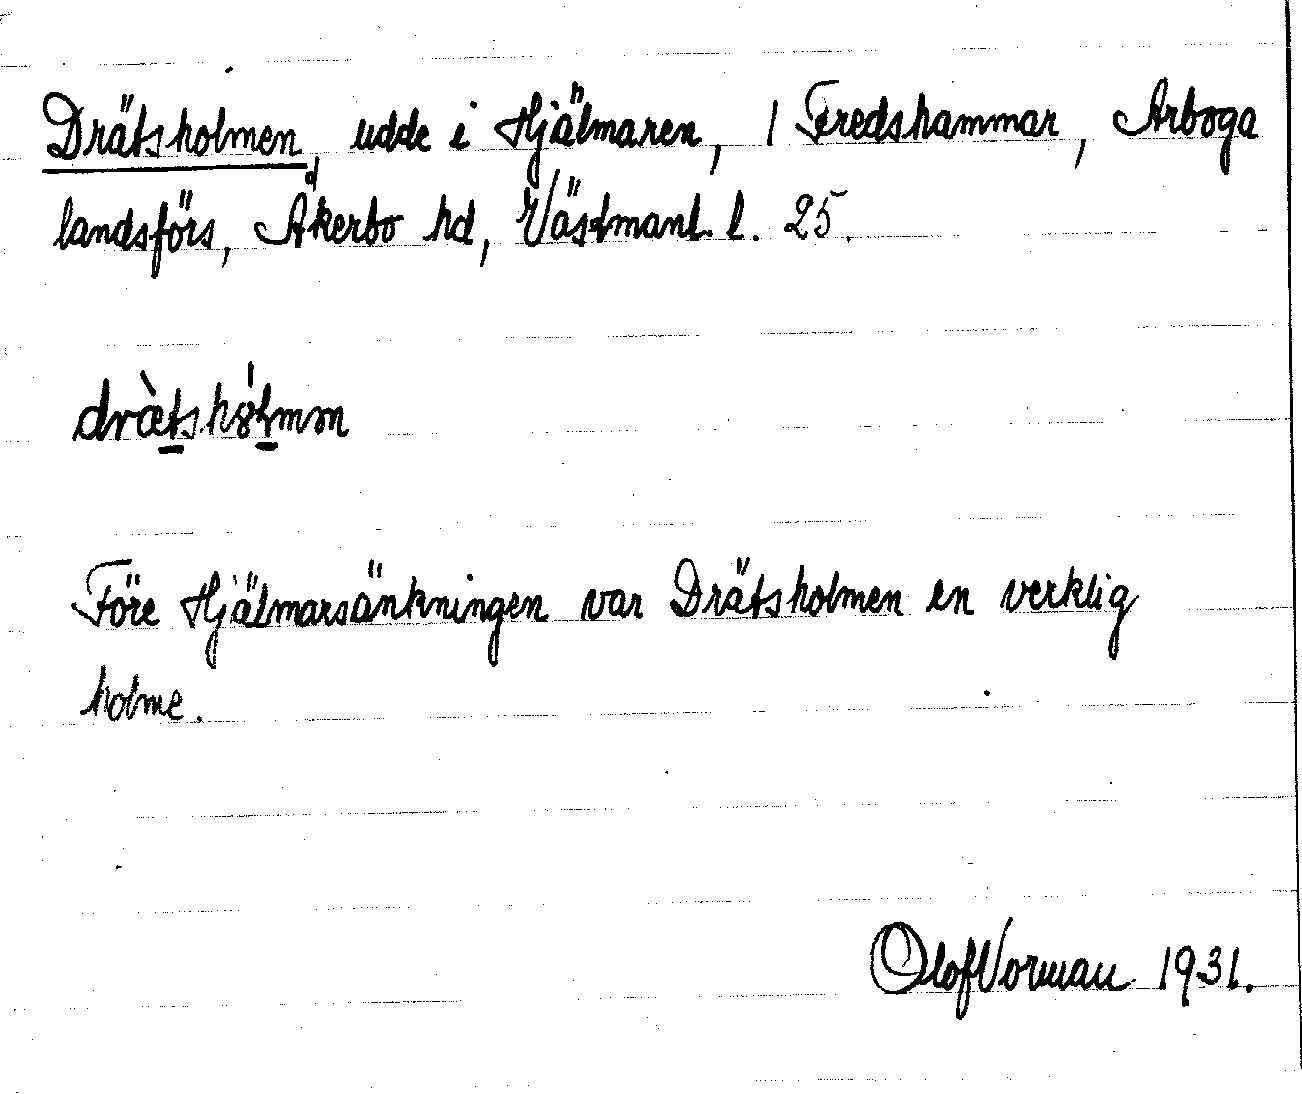 Drätsholmen, udde i Hjälmaren, 1 Fredshammar, Arboga
landsförs, Åkerbo hd, Västmanl. l. 25.
drætsholmen
Före Hjälmarsänkningen var Drätsholmen en verklig
holme.
Olof Vorman 1931.